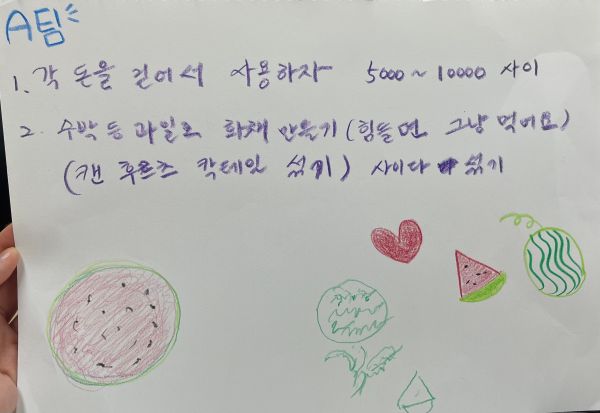 A팀
1. 각 돈을 걷어서 사용하자 5000~10000 사이
2. 수박 등 과일로 화채 만들기 (힘들면 그냥 먹어요)
(캔 후르츠 칵테일 섞기) 사이다 섞기